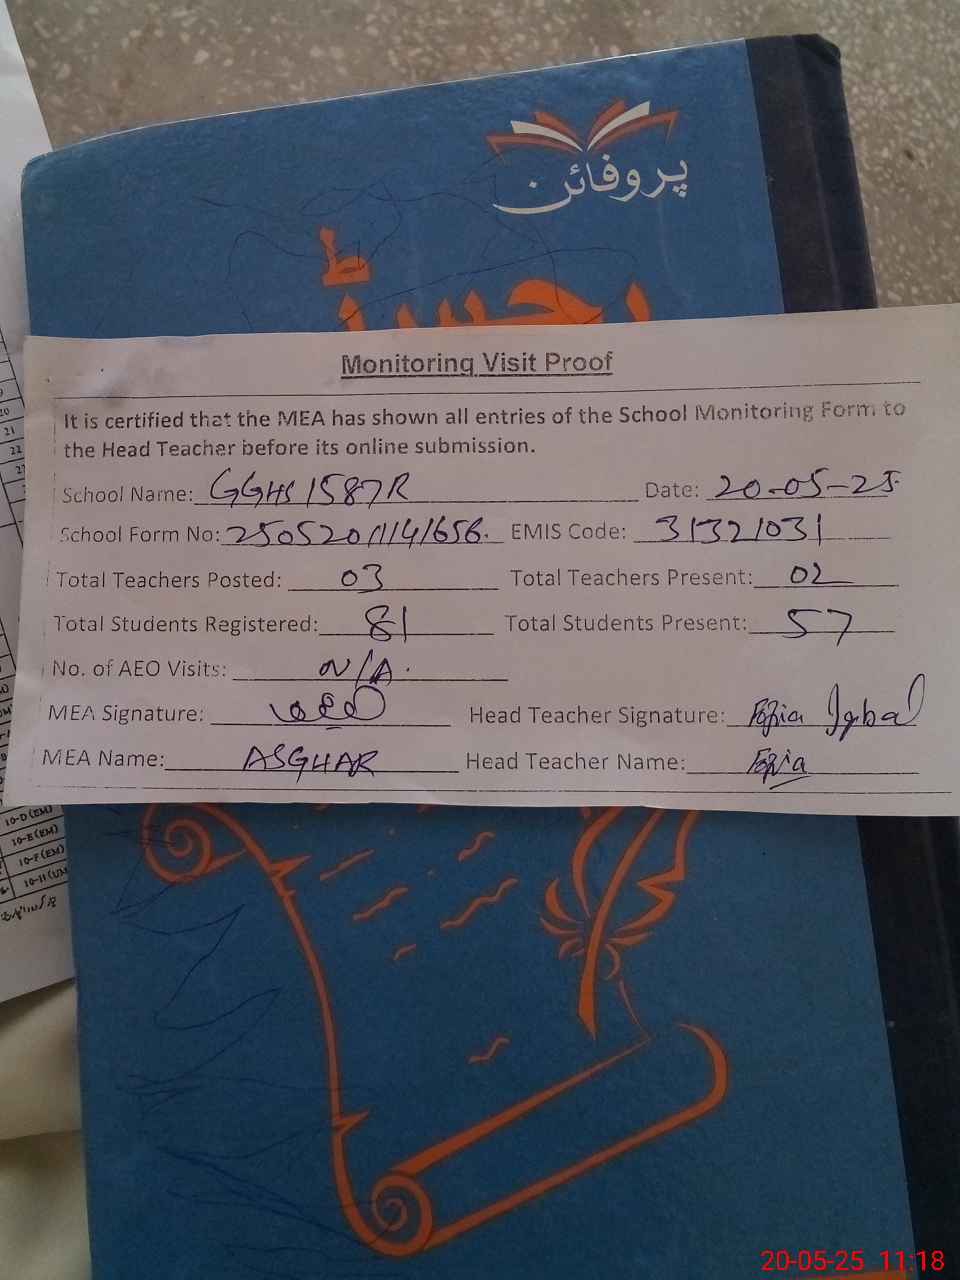 پروفائن
رجسٹر
Monitoring Visit Proof
It is certified that the MEA has shown all entries of the School Monitoring Form to
the Head Teacher before its online submission.
School Name: GGHS 1587R Date: 20-05-25
School Form No: 25052011141656. EMIS Code: 31321031
Total Teachers Posted: 03 Total Teachers Present: 02
Total Students Registered: 81 Total Students Present: 57
No. of AEO Visits: N/A.
MEA Signature: Head Teacher Signature: Fozia Iqbal
MEA Name: ASGHAR Head Teacher Name: Fozia
20
21
22
10-D(EM)
10-E(EM)
10-F(EM)
20-05-25 11:18